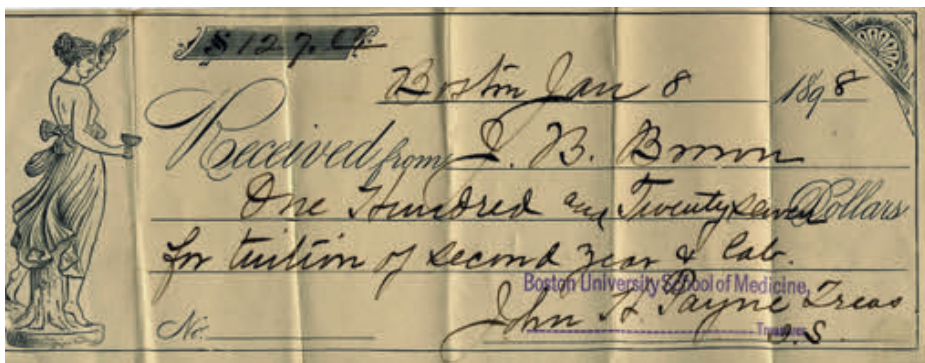 $127.00
Boston Jan 8 1898
Received from J. B. Brown
One Hundred and Twenty seven Dollars
for tuition of second year & Lab.
Boston University School of Medicine,
John H Payne Treas
Treasurer
No. D.S.